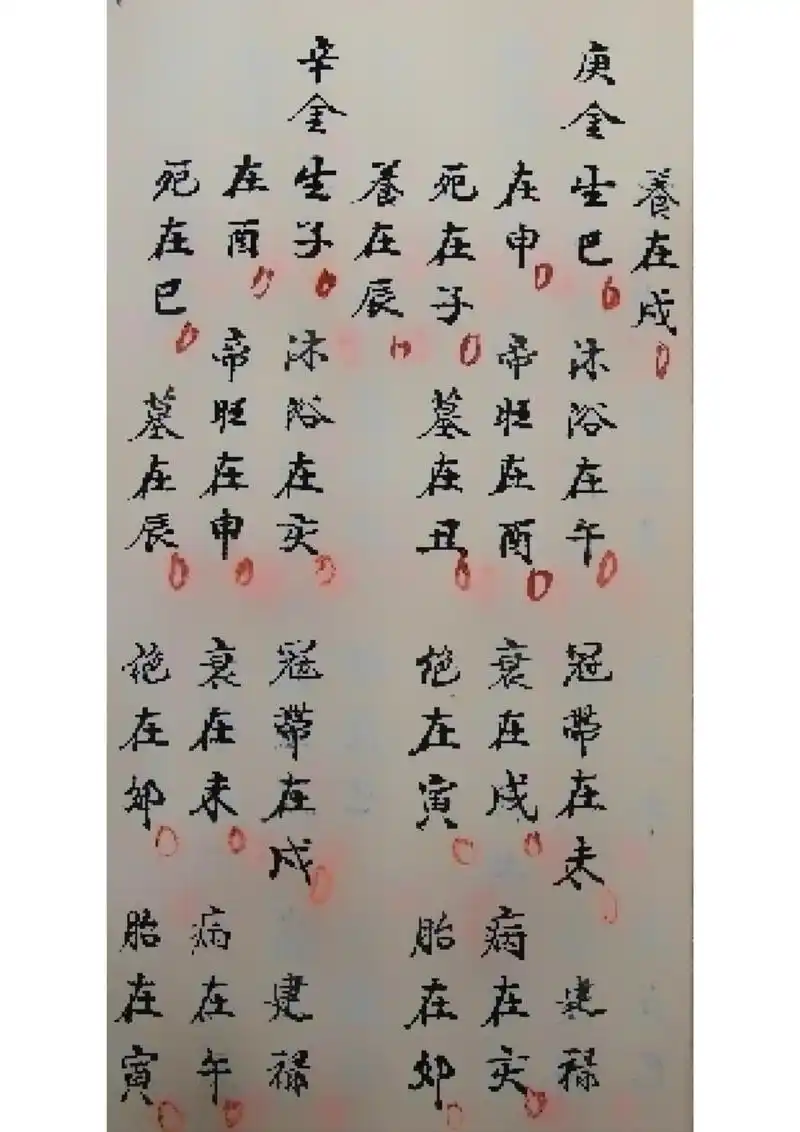 養在戌
庚金生巳 沐浴在午 冠帶在未 建祿
在申 帝旺在酉 衰在戌 病在亥
死在子 墓在丑 绝在寅 胎在卯
養在辰
辛金生子 沐浴在亥 冠帶在戌 建祿
在酉 帝旺在申 衰在未 病在午
死在巳 墓在辰 绝在卯 胎在寅